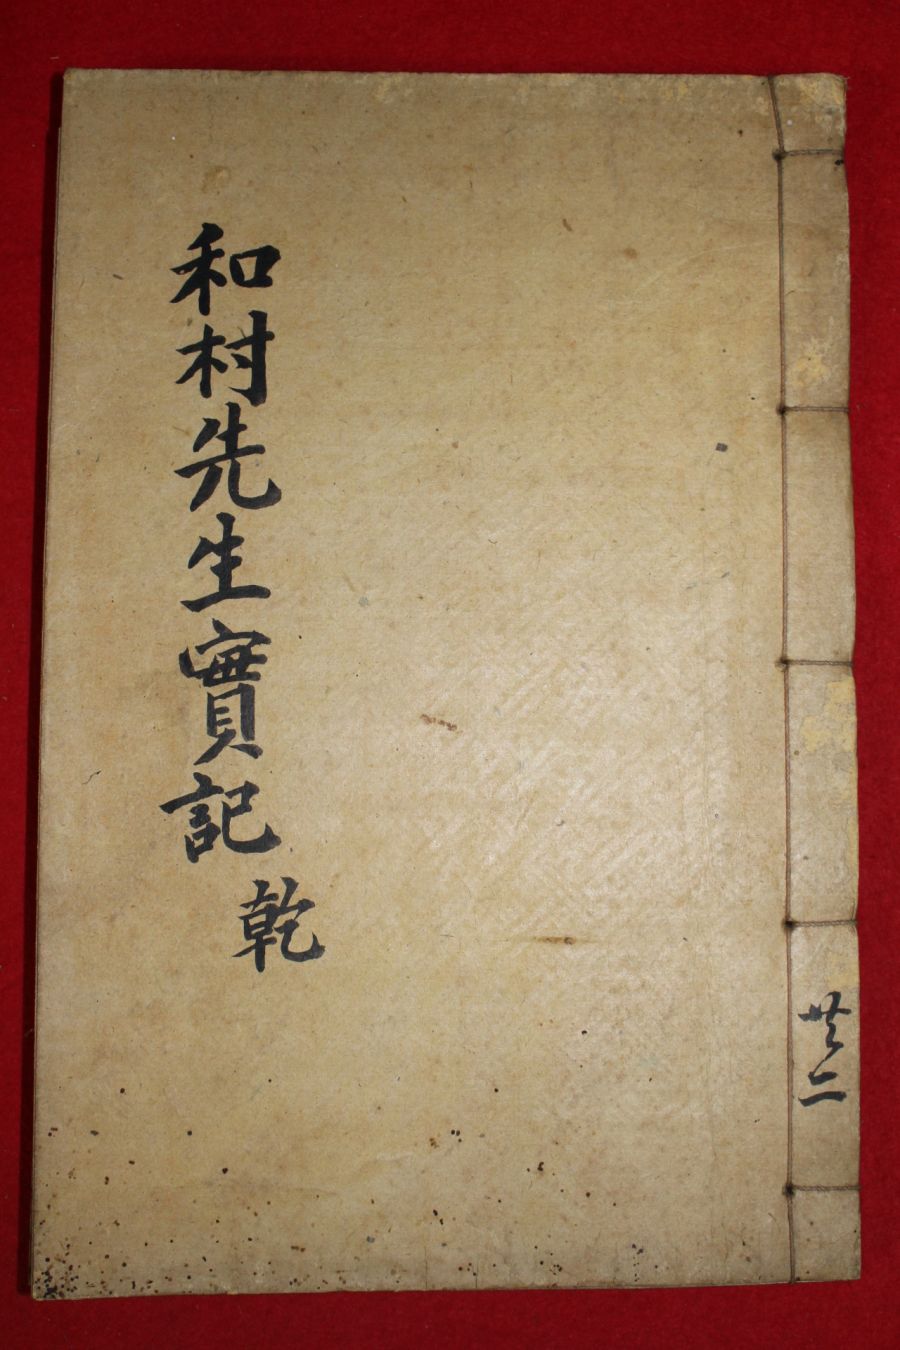 共二
和村先生實記
乾